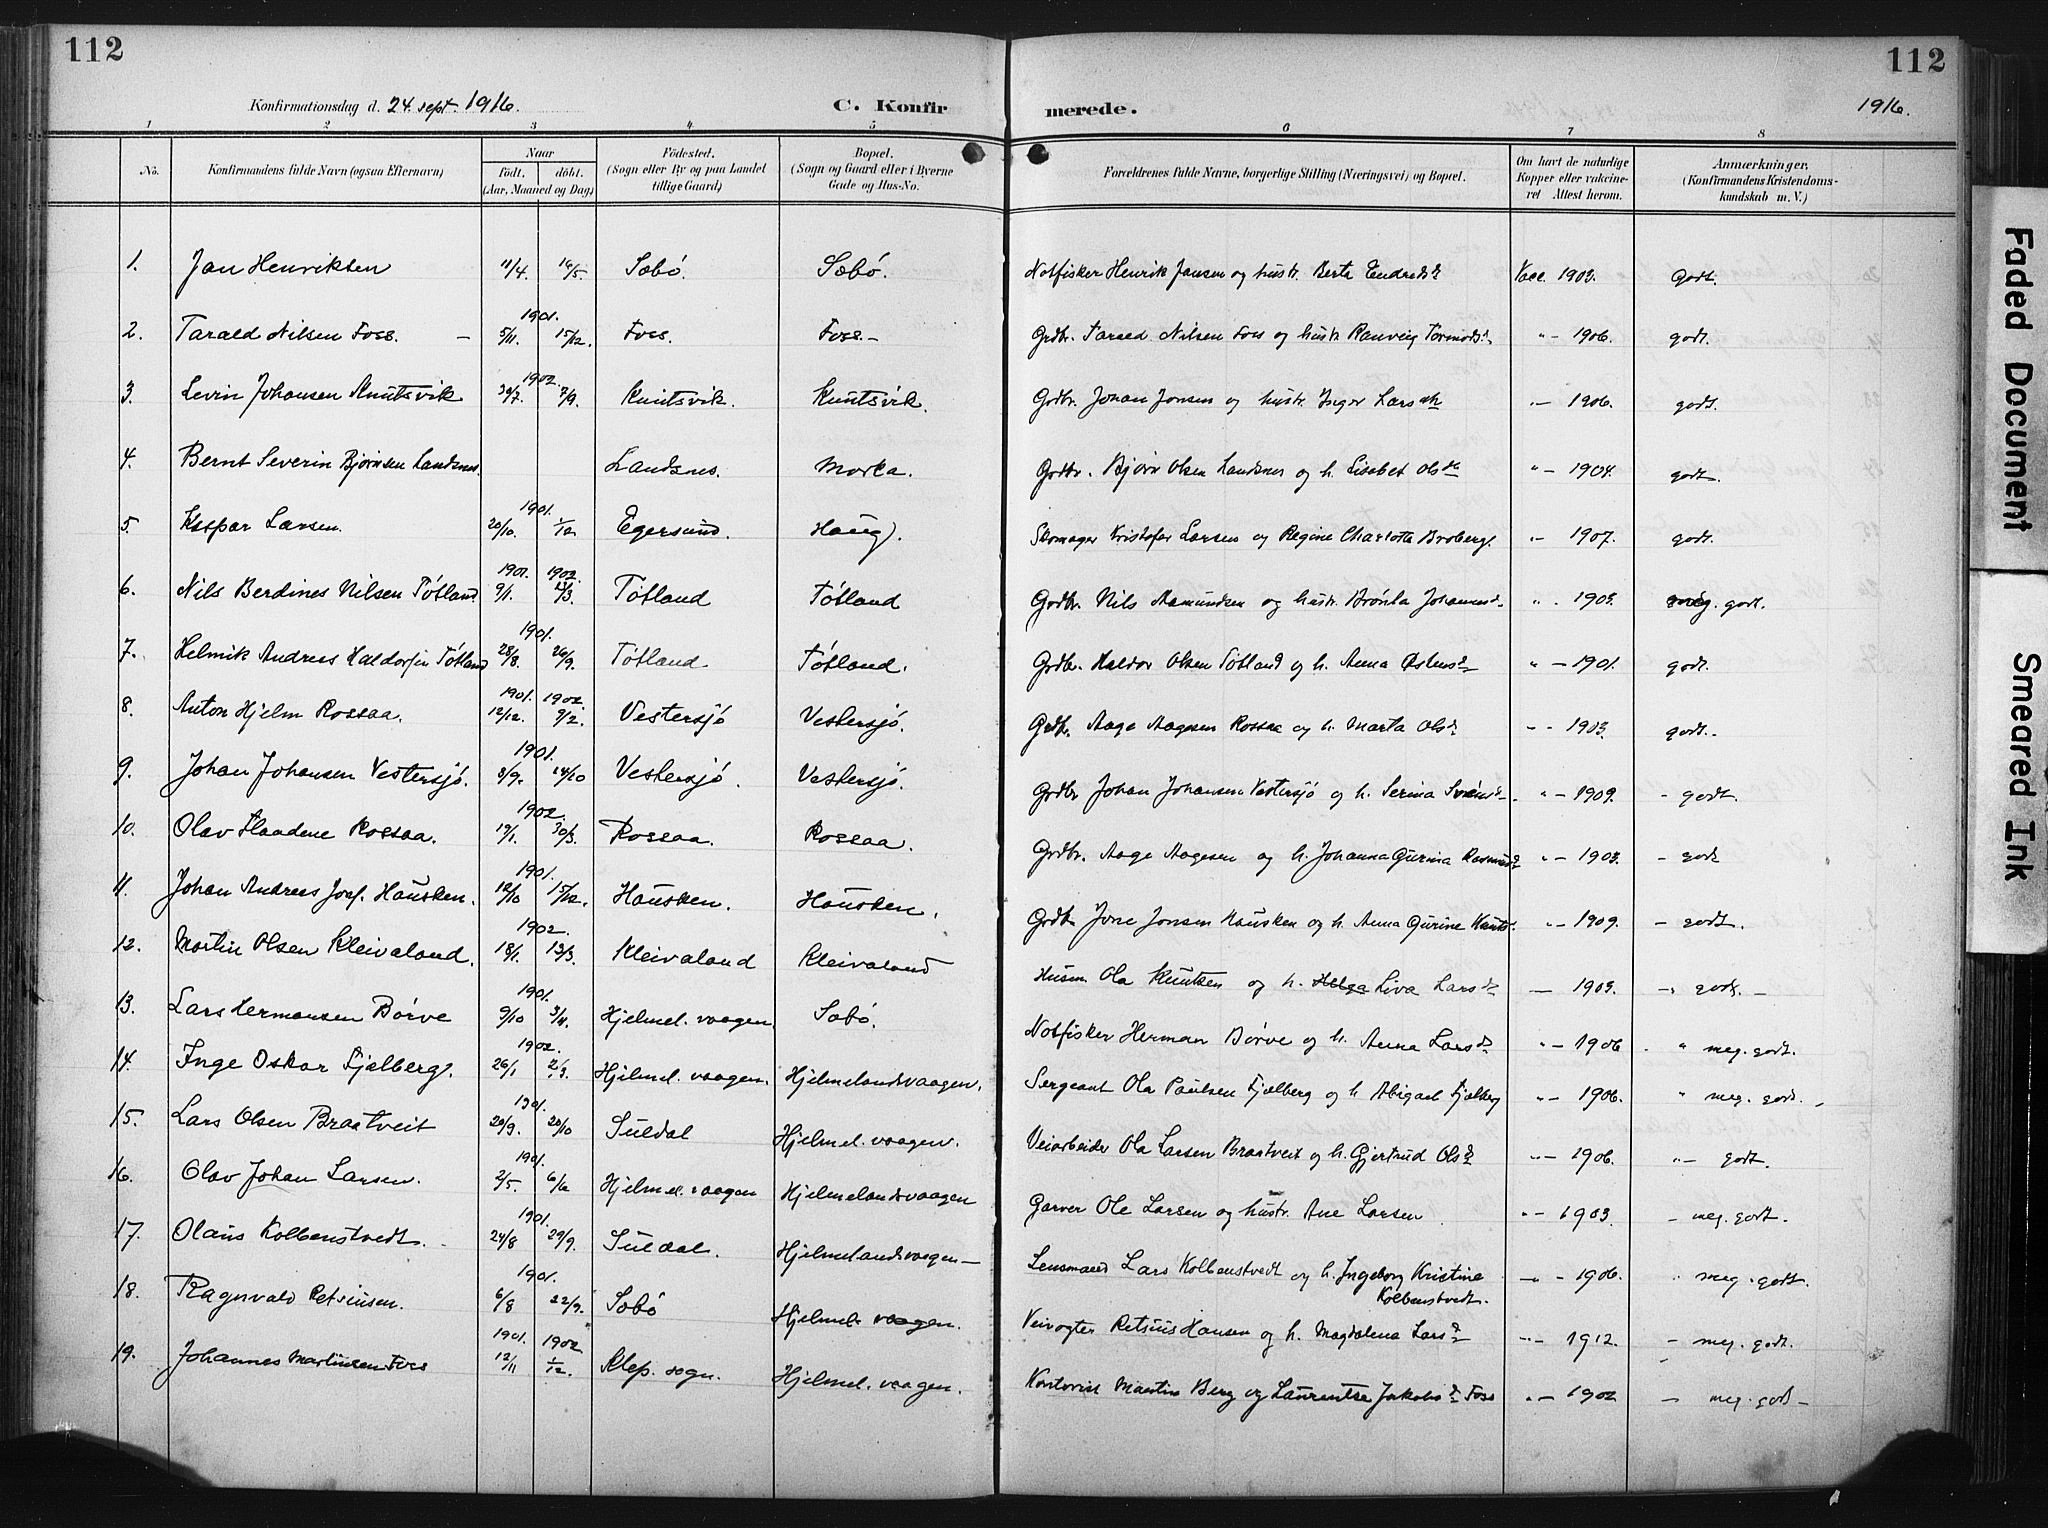 112 112
Konfirmationsdag d. 24. sept. 1916. C. Konfirmerede. 1916.
1 2 3 4 5 6 7 8
No. Konfirmandens fulde Navn (ogsaa Efternavn) Naar født. døbt. (Aar, Maaned og Dag) Fødested. (Sogn eller By og paa Landet tillige Gaard) Bopæl. (Sogn og Gaard eller i Byerne Gade og Hus-No. Forældrenes fulde Navne, borgerlige Stilling (Næringsvei) og Bopæl. Om havt de naturlige Kopper eller vakcineret Attest herom. Anmærkninger. (Konfirmandens Kristendomskundskab m. V.)
1. Jan Henriksen 11/4. 16/5. Sæbø. Sæbø. Notfisker Henrik Jansen og hustr. Berta Endresdr Vacc. 1903. godt.
2. Tarald Nilsen Foss. – 1901. 5/11. 15/12. Foss. Foss. – Grdbr. Tarald Nilsen Foss og hustr. Ranveig Tormodsdr. " – 1906. godt.
3. Levin Johansen Knutsvik 1902. 30/7. 7/9. Knutsvik. Knutsvik. Grdbr. Johan Jonsen og hustr. Inger Larsdtr " – 1906. godt.
4. Bernt Severin Bjørnsen Landsnes. Landsnes. Morka. Grdbr. Bjørn Olsen Landsnes og h. Lisabet Olsdtr " – 1904. godt.
5. Kaspar Larsen. 1901. 20/10. 1/12 Egersund. Haug. Skomager Kristofer Larsen og Regine Charlotte Broberg. " – 1907. godt.
6. Nils Berdines Nilsen Tøtland. 1901. 1902. 9/1. /3. Tøtland Tøtland Grdbr. Nils Aamundsen og hustr. Brønla Johannesd. " . 1903. meg. godt.
7. Helmik Andreas Haldorsen Tøtland 1901. 28/8. 26/9. Tøtland Tøtland. Grdbr. Haldor Olsen Tøtland og h. Anna " – 1901. godt.
8. Anton Hjelm Rossaa. 1901. 1902. 12/12. 9/2. Vestersjø Vestersjø. Grdbr. Aage Aagesen Rossaa og h. Marta Olsdr " – 1903. godt.
9. Johan Johansen Vestersjø. 1901. 8/9. 24/10 Vestersjø. Vestersjø. Grdbr Johan Johansen Vestersjø og h. Serina Sveinsdr. " – 1909. – godt.
10. Olav Haadene Rossaa. 1902. 19/1. 30/3. Rossaa. Rossaa. Grdbr. Aage Aagesen og h. Johanna Gurina Rasmusdr " – 1903. – godt
11. Johan Andreas Josef Hausken. 1901. 12/10 15/12. Hausken. Hausken. Grdbr Jone Jonsen Hausken og h. Anna Gurine " – 1909. – godt.
12. Martin Olsen Kleivaland. 1902. 18/1. 13/3. Kleivaland Kleivaland Husm. Ola Knutsen og h. Helga Liva Larsdr – 1903. –. godt. –
13. Lars Hermansen Børve 1901. 9/10 3/11. Hjelmel. vaagen. Sæbø. Notfisker Herman Børve og h. Anna Larsdr. " – 1906 " meg. godt.
14. Inge Oskar Fjelberg. 1902. 26/1 2/3. Hjelmel. vaagen. Hjelmelandsvaagen. Sergeant Ola Paulsen Fjelberg og h. Abigael Fjelberg " – 1906. " meg. godt. –
15. Lars Olsen Braatveit 1901. 20/9. 20/10 Suldal Hjelmel. vaagen. Veiarbeider Ola Larsen Braatveit og h. Gjertrud Olsdr " – 1906. " – godt.
16. Olav Johan Larsen. 1901. 2/5. 6/6 Hjelmel. vaagen Hjelmelandsvaagen Garver Ole Larsen og hustr. Ane Larsen " – 1903. – meg. godt.
17. Olaus Kolbenstvedt. 1901. 24/8 29/9. Suldal. Hjelmelandsvaagen – Lensmand Lars Kolbenstvedt og h. Ingeborg Kristine Kolbenstvedt. " – 1906. " meg. godt.
18. Ragnvald Retsiusen. 1901. 6/8 22/9. Sæbø Hjelmel. vaagen. Veivogter Retsius Hansen og h. Magdalena Larsdr " – 1912. – meg. godt.
19. Johannes Martinsen Foss 1901. 1902 12/11 1/12. Klep. sogn. Hjelmel. vaagen. Kontorist Martin Berg og Laurentse Jakobsdr Foss " – 1902 – meg. godt –
Faded Document
Smeared Ink